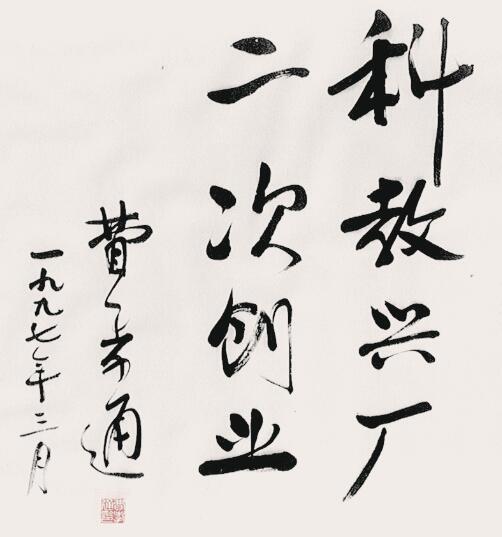 科教兴厂
二次创业
费孝通
一九九七年三月